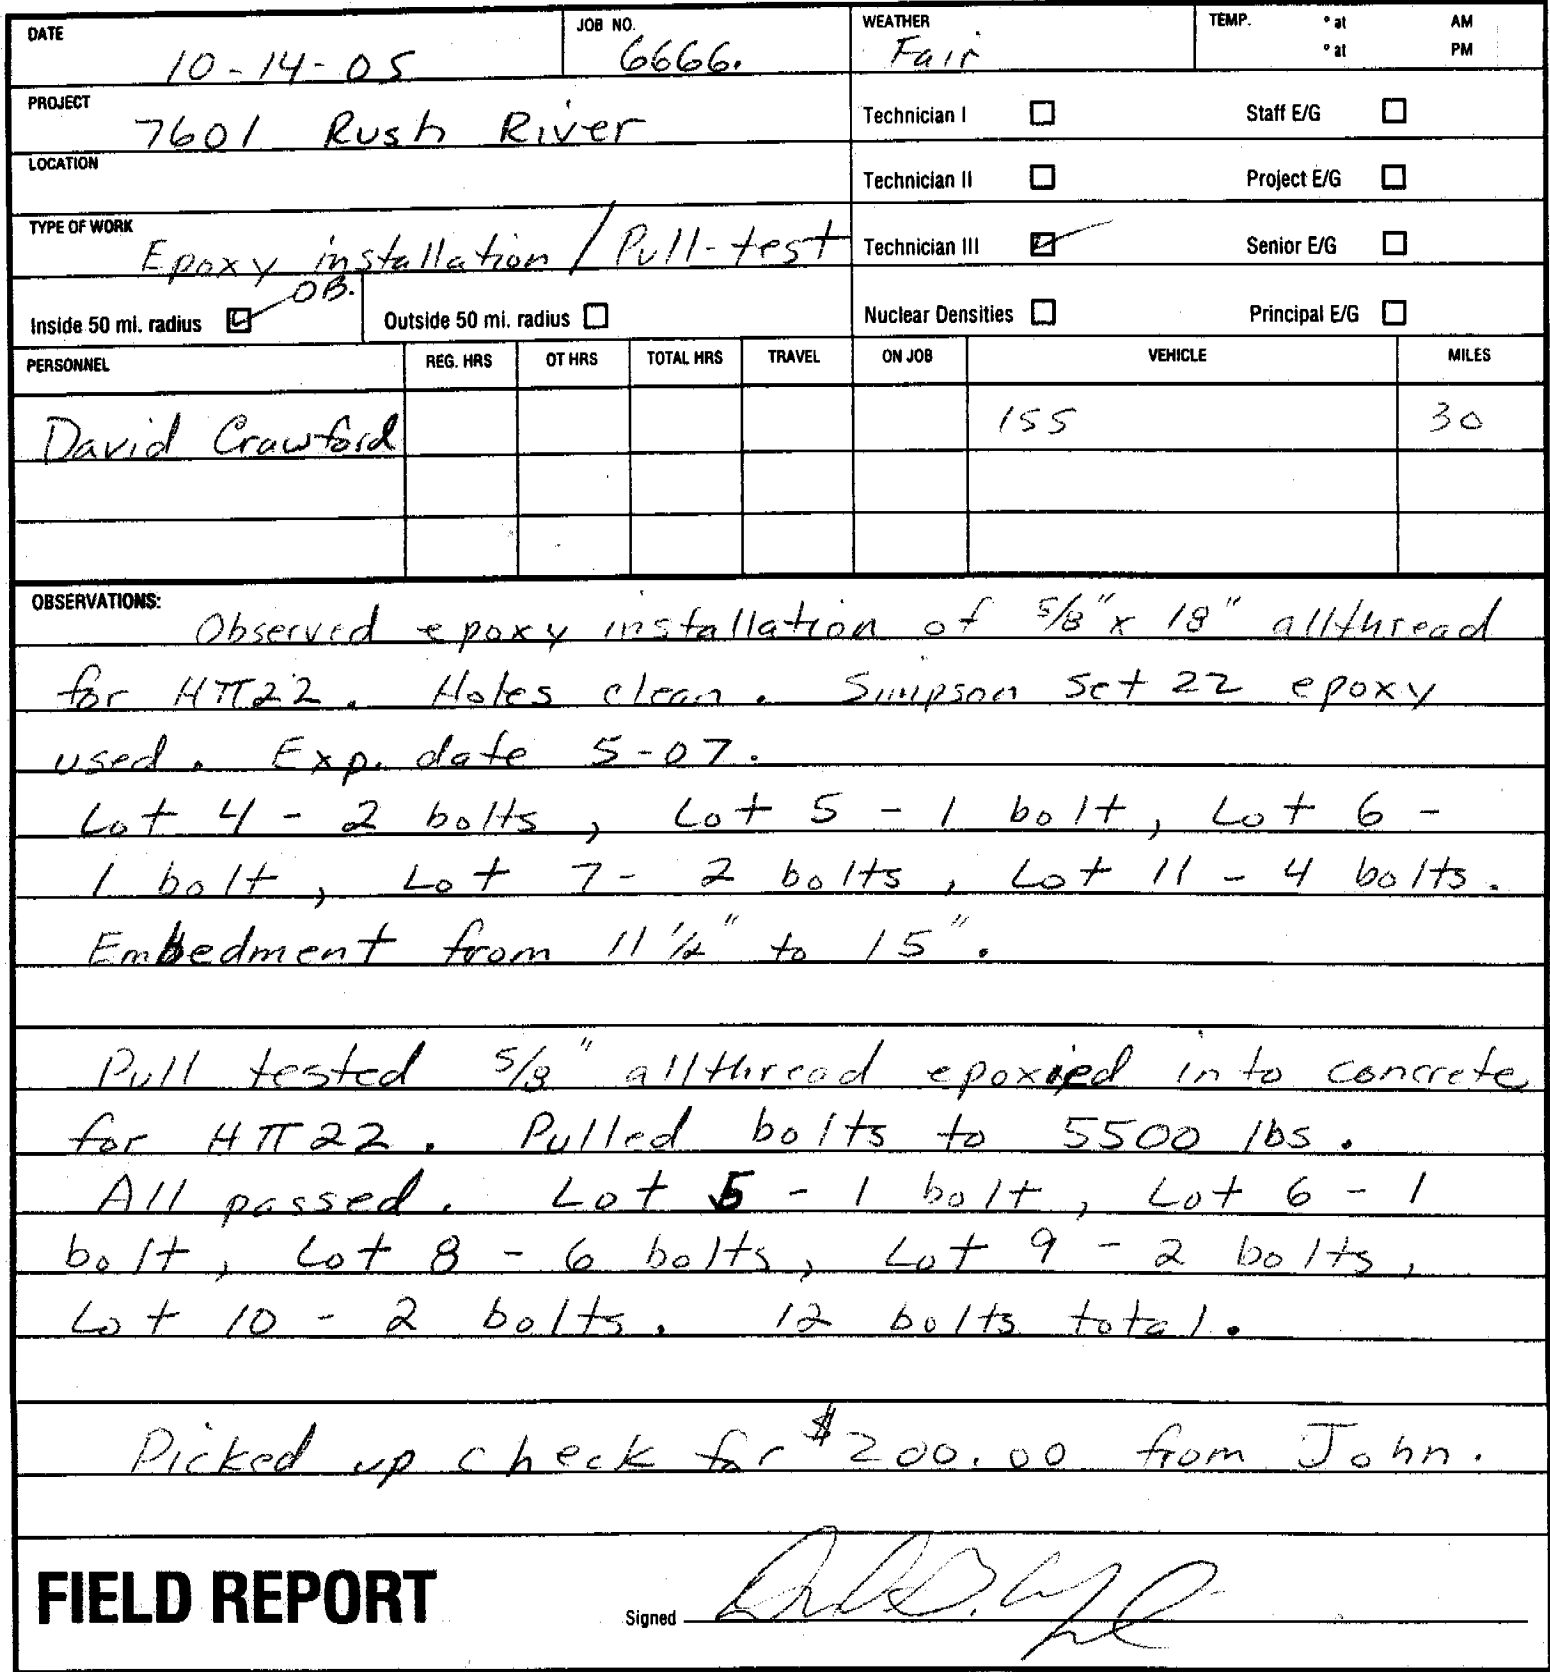 DATE 10-14-05 JOB NO. 6666. WEATHER Fair TEMP. ° at AM
° at PM
PROJECT 7601 Rush River Technician I Staff E/G
LOCATION Technician II Project E/G
TYPE OF WORK Epoxy installation / Pull-test Technician III Senior E/G
Inside 50 mi. radius OB. Outside 50 mi. radius Nuclear Densities Principal E/G
PERSONNEL REG. HRS OT HRS TOTAL HRS TRAVEL ON JOB VEHICLE MILES
David Crawford 155 30
OBSERVATIONS:
Observed epoxy installation of 5/8" x 18" allthread
for HTT22. Holes clean. Simpson Set 22 epoxy
used. Exp. date 5-07.
Lot 4 - 2 bolts, Lot 5 - 1 bolt, Lot 6 -
1 bolt, Lot 7 - 2 bolts, Lot 11 - 4 bolts.
Embedment from 11 1/2" to 15".
Pull tested 5/8" allthread epoxied into concrete
for HTT22. Pulled bolts to 5500 lbs.
All passed. Lot 5 - 1 bolt, Lot 6 - 1
bolt, Lot 8 - 6 bolts, Lot 9 - 2 bolts,
Lot 10 - 2 bolts. 12 bolts total.
Picked up check for $200.00 from John.
FIELD REPORT Signed